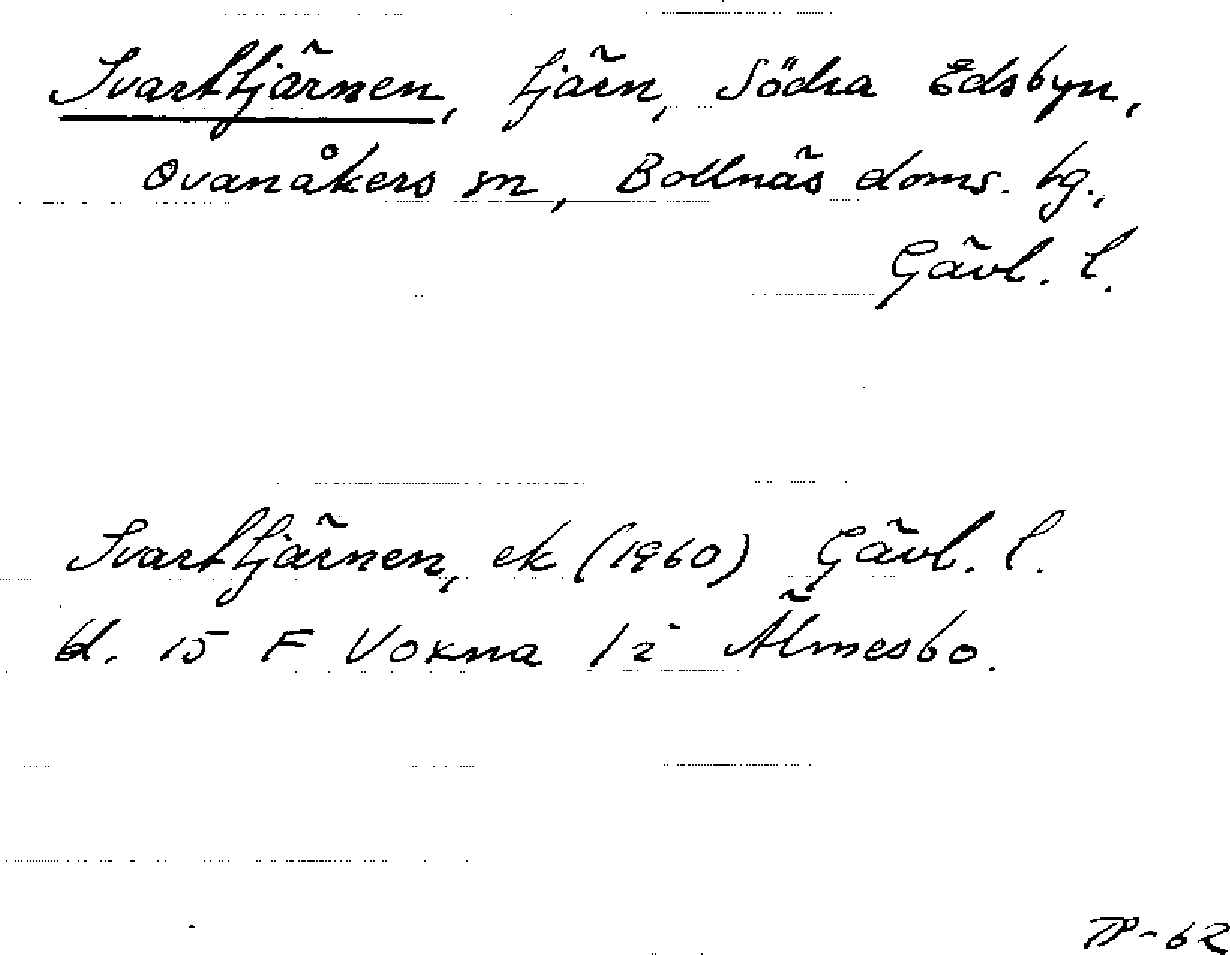 Svarttjärnen, tjärn, Södra Edsbyn,
Ovanåkers sn, Bollnäs doms. tg.,
Gävl. l.
Svarttjärnen, ek (1960) Gävl. l.
bl. 15 F Voxna 1 i Älmesbo.
TP-62